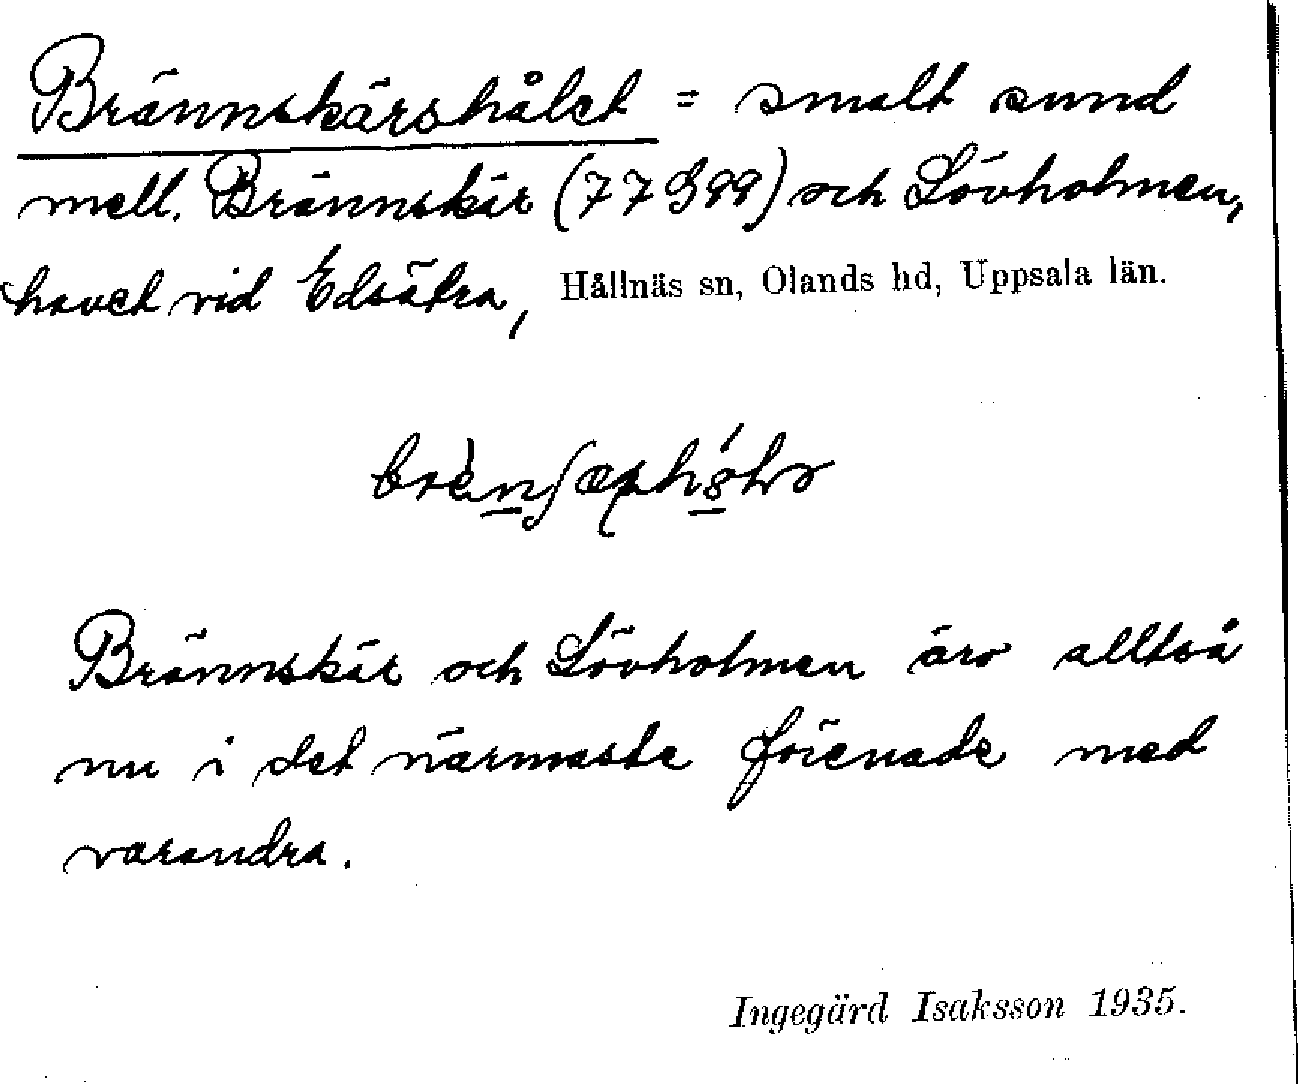 Brännskärshålet = smalt sund
mell. Brännskär (77 G 99) och Lövholmen,
havet vid Edsätra, Hållnäs sn, Olands hd, Uppsala län.
Brännskär och Lövholmen äro alltså
nu i det närmaste förenade med
varandra.
Ingegärd Isaksson 1935.